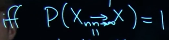 iff P(X_n → X) = 1